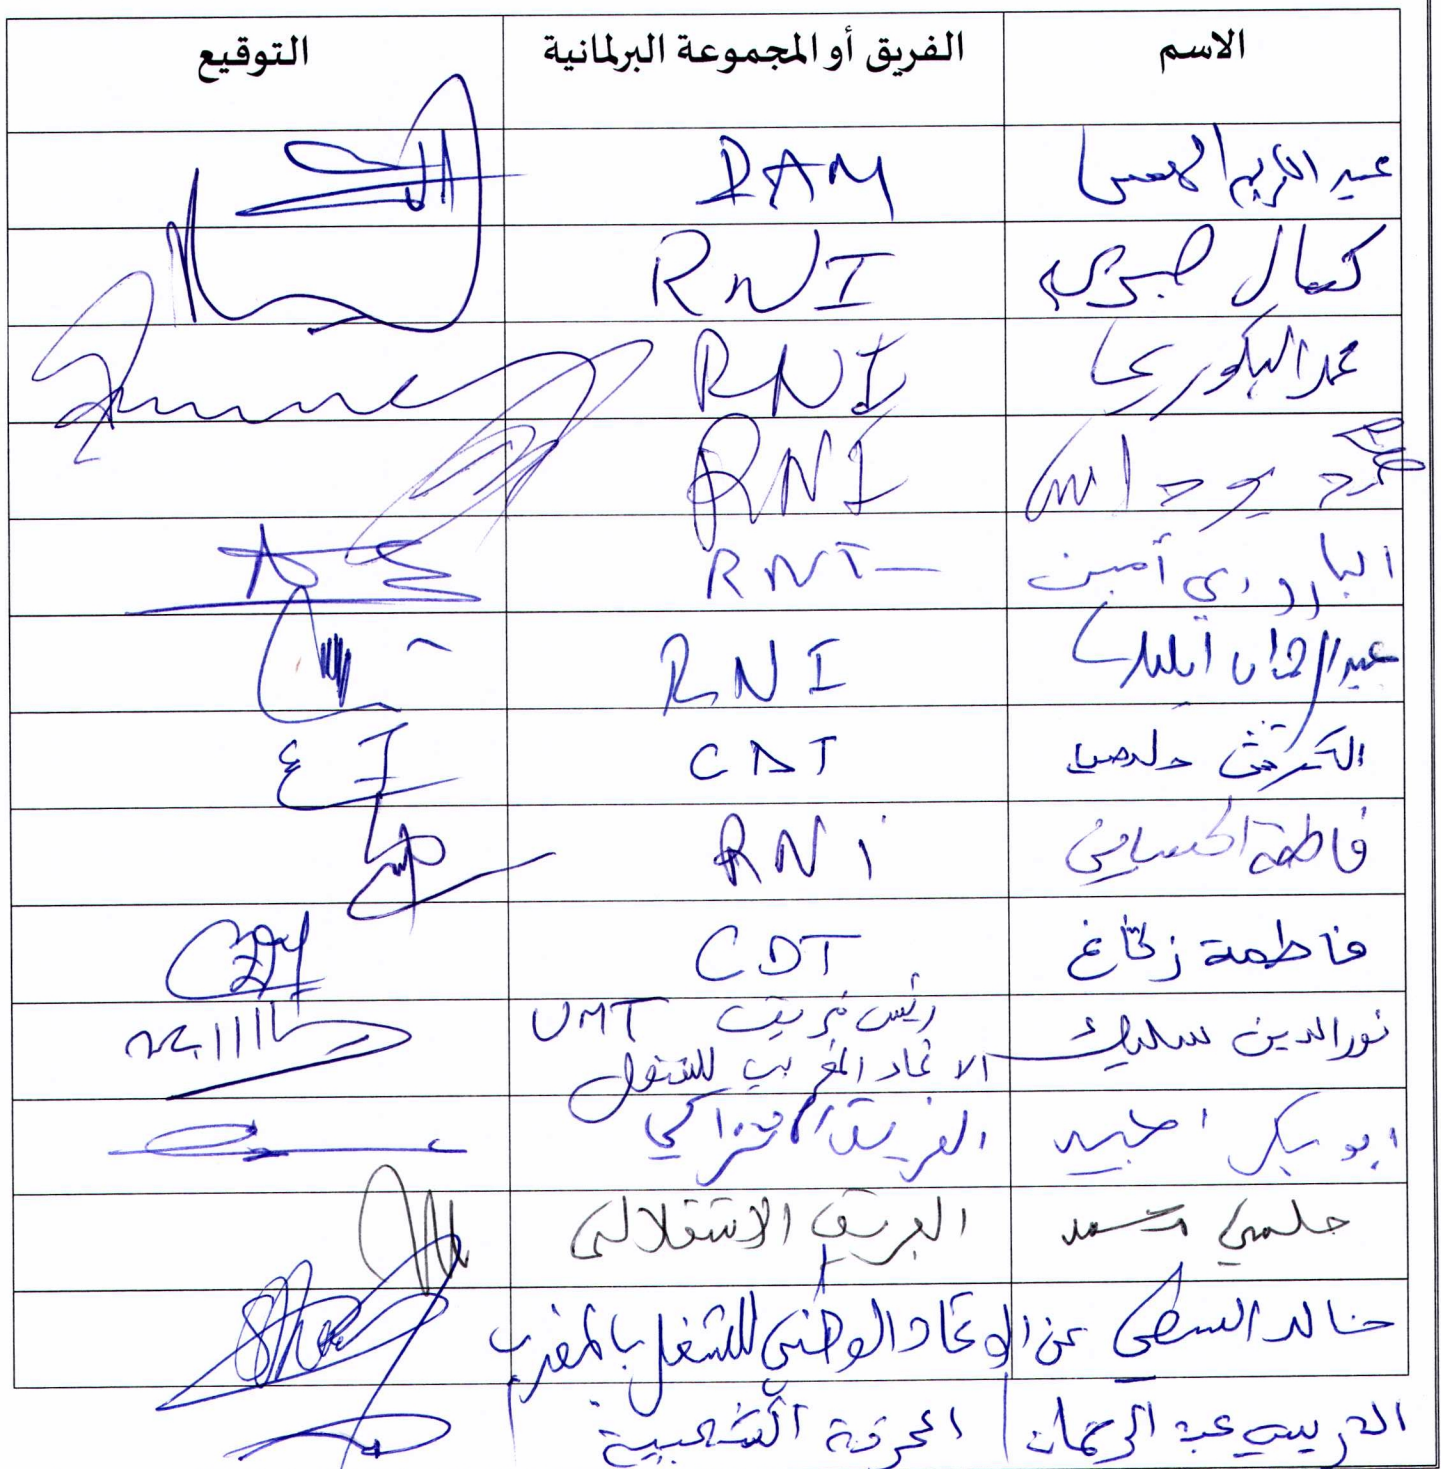 الاسم الفريق أو المجموعة البرلمانية التوقيع
عبد الكريم الهمس PAM
كمال صبري RNI
محمد البكوري RNI
RNI
البارودي أمين RNI
عبد الرحمان RNI
CDT
فاطمة الحساني RNI
فاطمة زكاغ CDT
نور الدين سليك رئيس فريق UMT
الاتحاد المغربي للشغل
ابو بكر اعبيد الفريق الاشتراكي
حلمي الفريق الاستقلالي
خالد السطي عن الاتحاد الوطني للشغل بالمغرب
الدريسي عبد الرحمان الحركة الشعبية